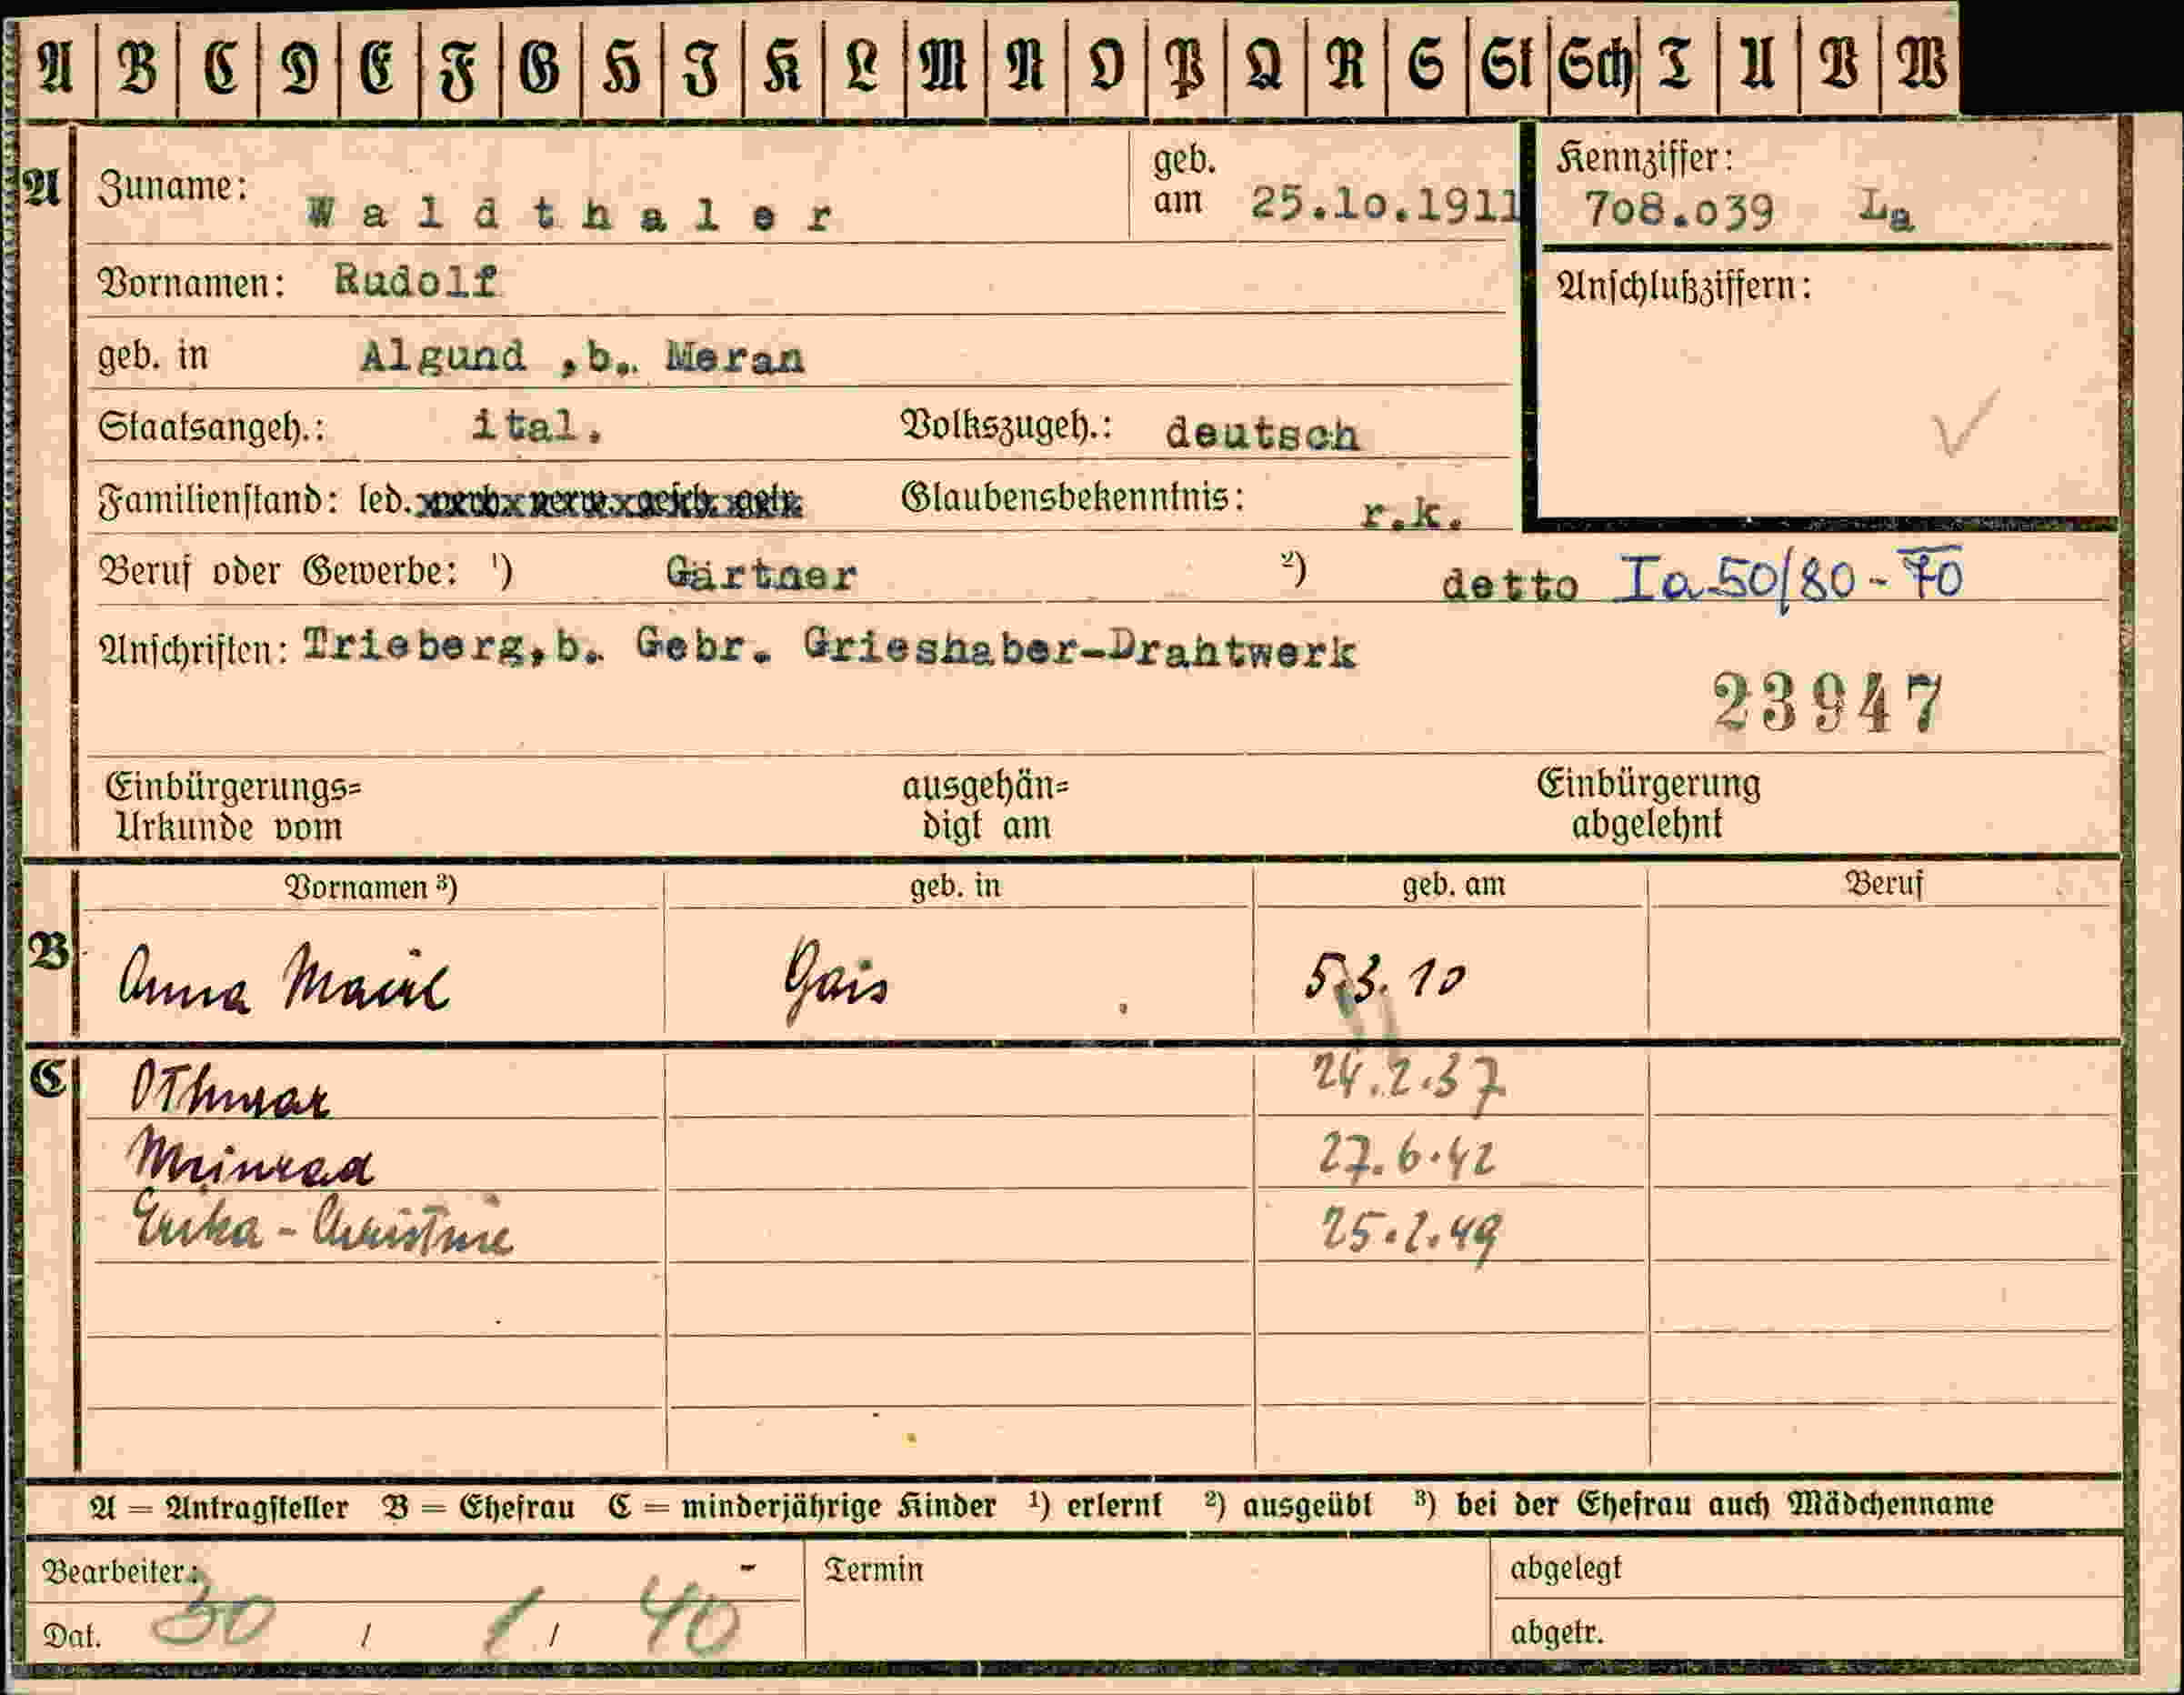 A B C D E F G H I K L M N O P Q R S St Sch T U V W
A Zuname: Waldthaler geb. am 25.10.1911 Kennziffer: 708.039 La
Vornamen: Rudolf Anschlußziffern:
geb. in Algund ,b. Meran
Staatsangeh.: ital. Volkszugeh.: deutsch
Familienstand: led. verh. verw. gesch. getr. Glaubensbekenntnis: r.k.
Beruf oder Gewerbe: ¹) Gärtner ²) detto Ia 50/80-70
Anschriften: Trieberg,b. Gebr. Grieshaber-Drahtwerk
23947
Einbürgerungs= ausgehän= Einbürgerung
Urkunde vom digt am abgelehnt
Vornamen ³) geb. in geb. am Beruf
B Anna Mairl Gais 5.3.10
C Othmar 24.2.37
Meinrad 27.6.42
Erika-Christine 25.2.49
A = Antragsteller B = Ehefrau C = minderjährige Kinder ¹) erlernt ²) ausgeübt ³) bei der Ehefrau auch Mädchenname
Bearbeiter: - Termin abgelegt
Dat. 30 / 1 / 40 abgetr.